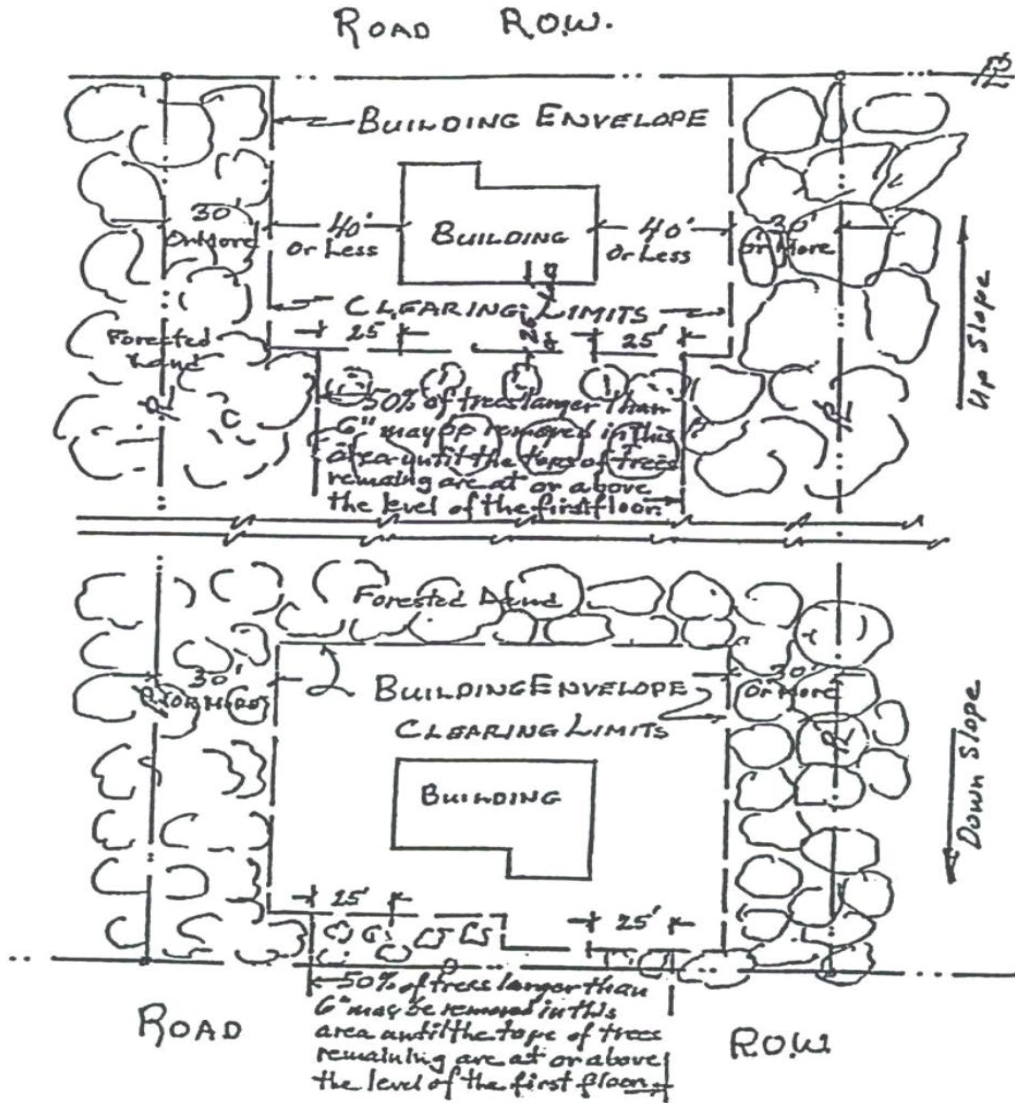 ROAD R.O.W.
BUILDING ENVELOPE
30'
Or More
40'
Or Less
BUILDING
40'
Or Less
30'
Or More
CLEARING LIMITS
25'
25'
Forested
Land
Up Slope
50% of trees larger than
6" may be removed in this
area until the tops of trees
remaining are at or above
the level of the first floor.
Forested Land
30'
OR MORE
BUILDING ENVELOPE
30'
Or More
CLEARING LIMITS
BUILDING
Down Slope
25'
25'
50% of trees larger than
6" may be removed in this
area until the tops of trees
remaining are at or above
the level of the first floor.
ROAD R.O.W.